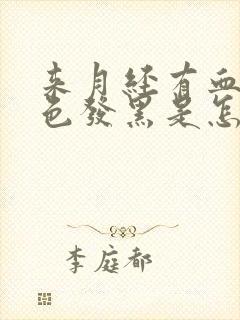 来月经有血
色发黑是怎
李庭都